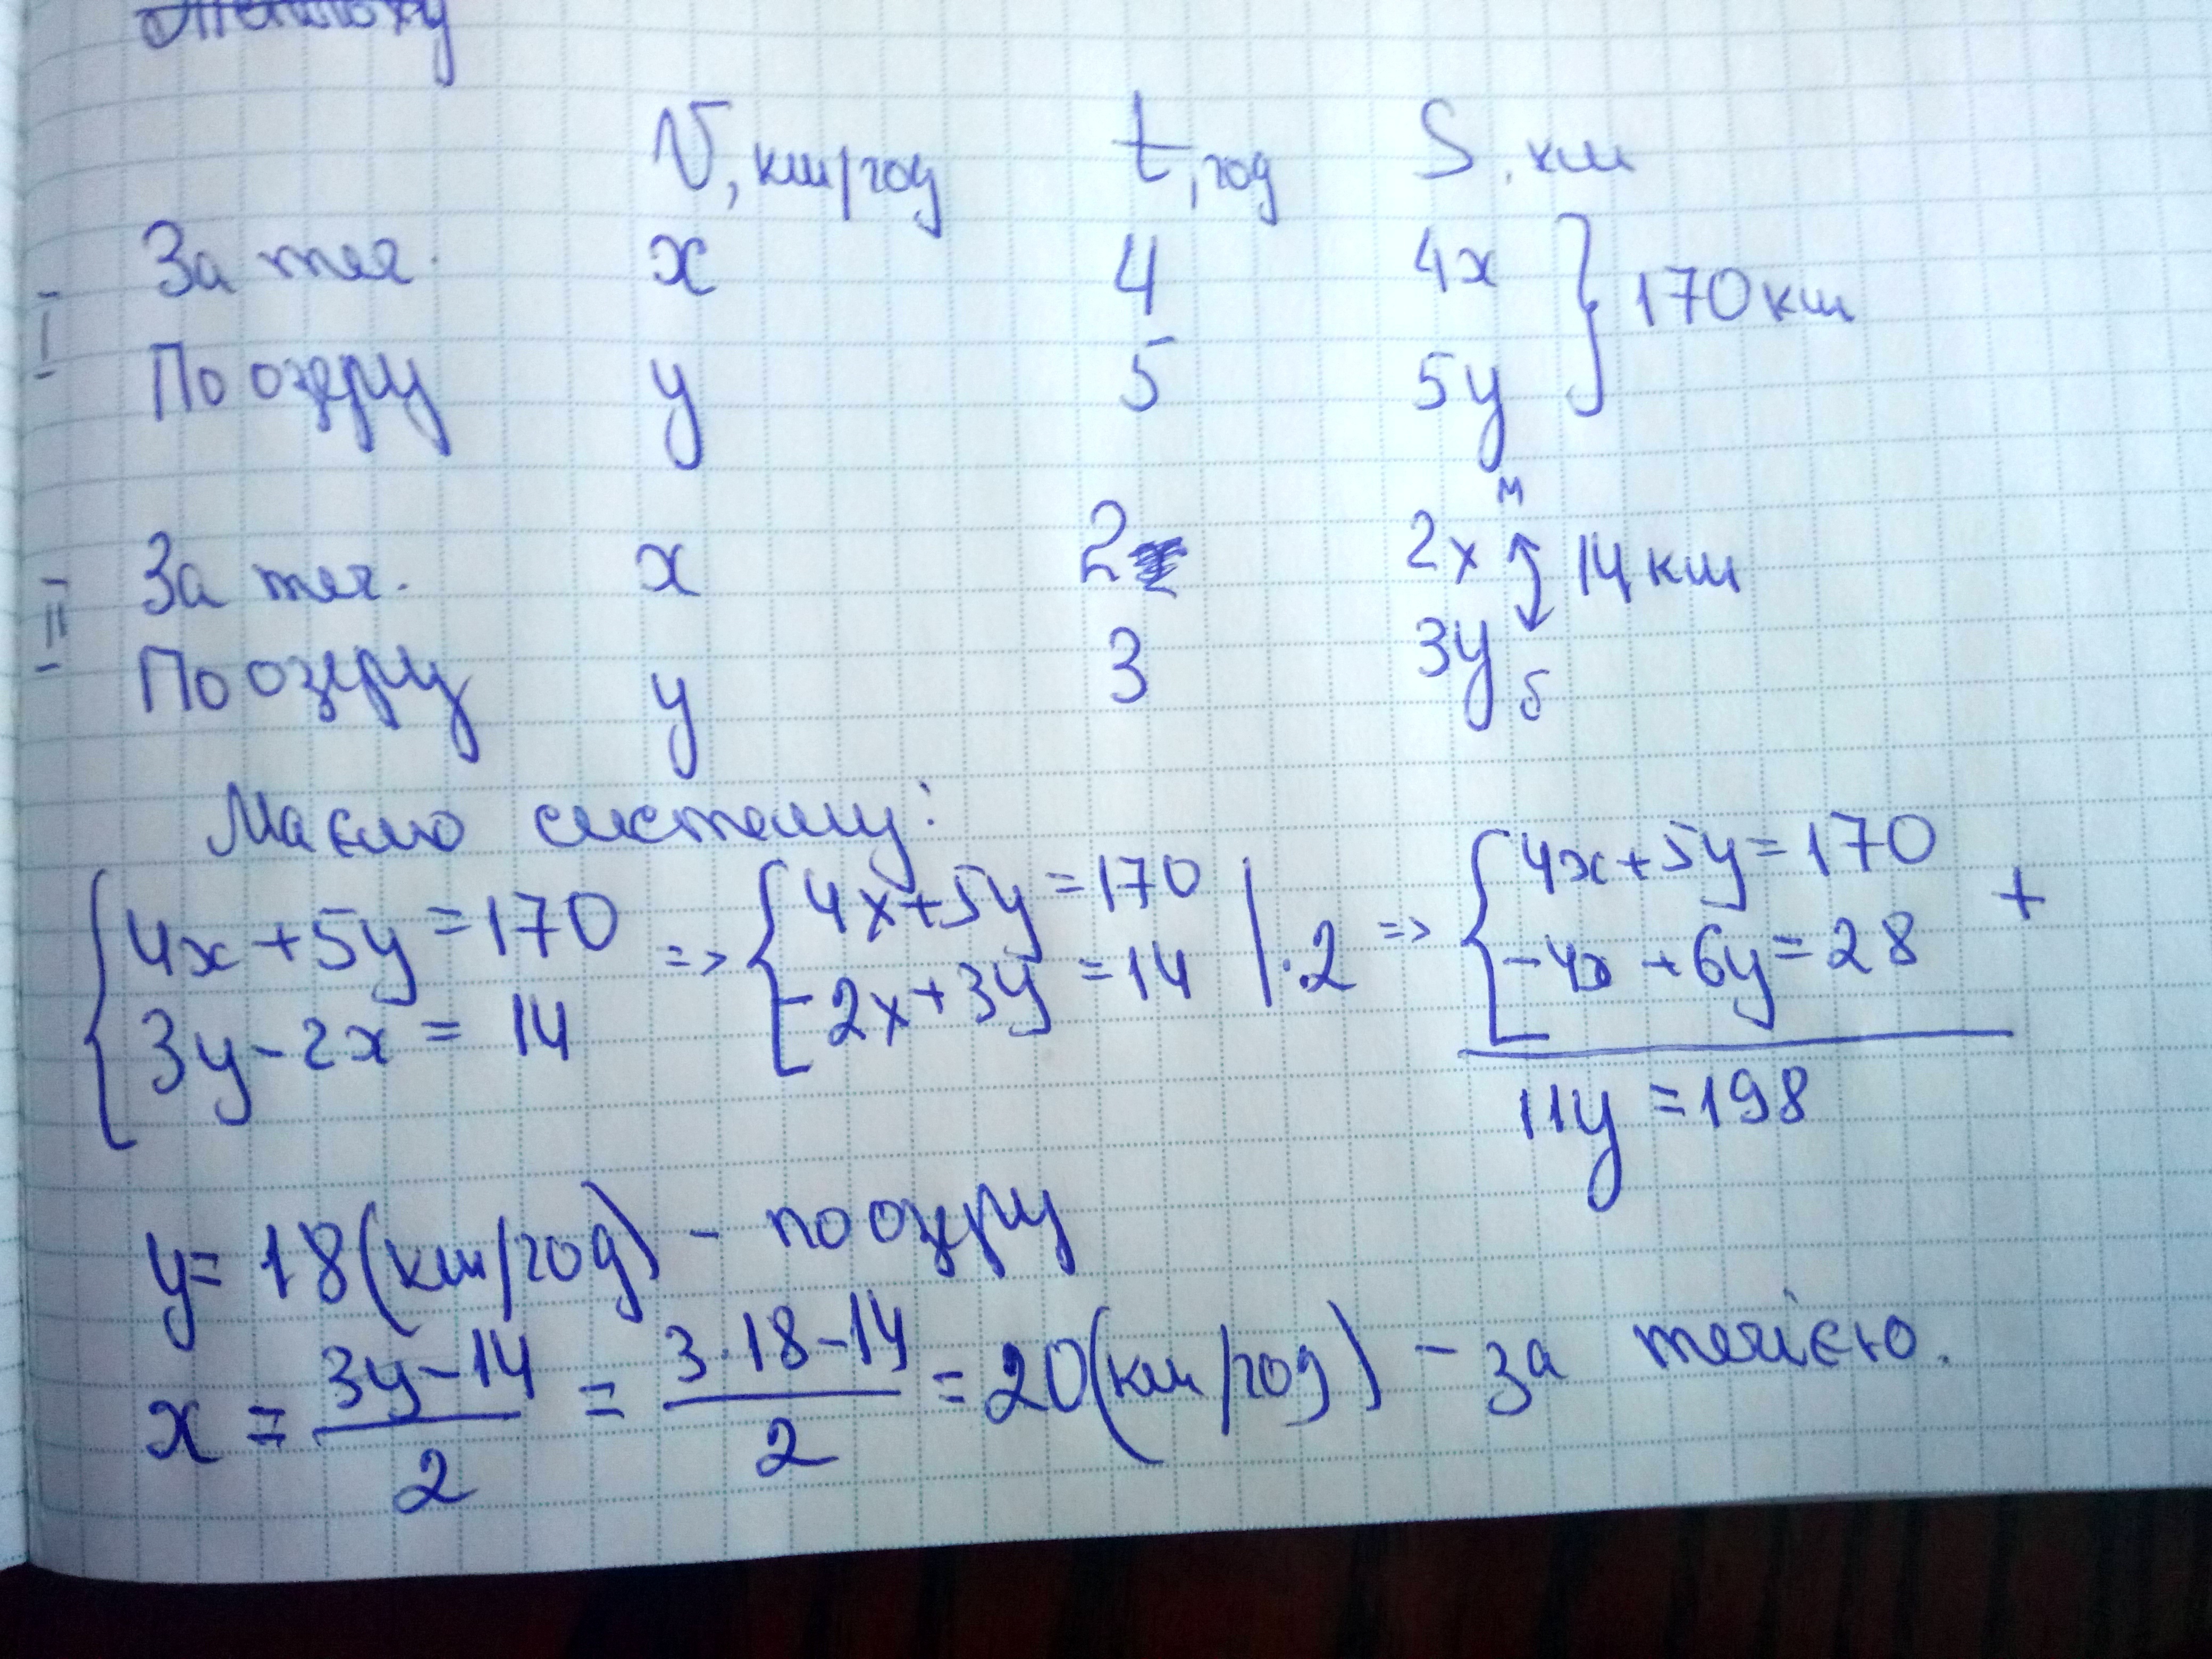 V, км/год t, год S, км
I За теч. x 4 4x } 170 км
По озеру y 5 5y
II За теч. x 2 2x м 14 км
По озеру y 3 3y б
Маємо систему:
{ 4x + 5y = 170 => { 4x + 5y = 170 => { 4x + 5y = 170 +
3y - 2x = 14 -2x + 3y = 14 | · 2 -4x + 6y = 28
11y = 198
y = 18 (км/год) - по озеру
x = 3y - 14 / 2 = 3 · 18 - 14 / 2 = 20 (км/год) - за течією.